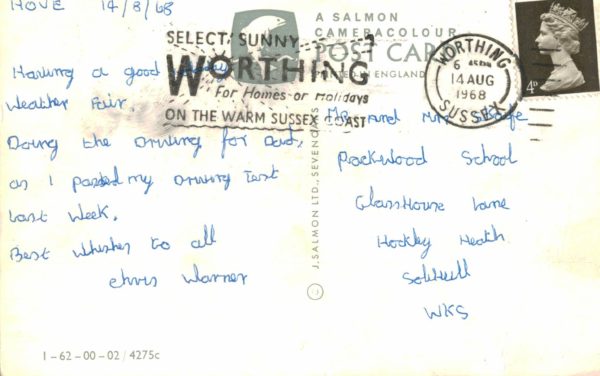 HOVE 14/8/68
Having a good
Weather Fair.
Doing the driving for Dad,
as I passed my Driving Test
last Week.
Best Whishes to all
Chris Warner
1-62-00-02/4275c
A SALMON
CAMERACOLOUR
POST CARD
PRINTED IN ENGLAND
SELECT SUNNY
WORTHING
For Homes or Holidays
ON THE WARM SUSSEX COAST
WORTHING
6
14 AUG
1968
SUSSEX
4D
J. SALMON LTD., SEVENOAKS
and Mrs
Packwood School
GlassHouse Lane
Hockley Heath
Solihull
WKS